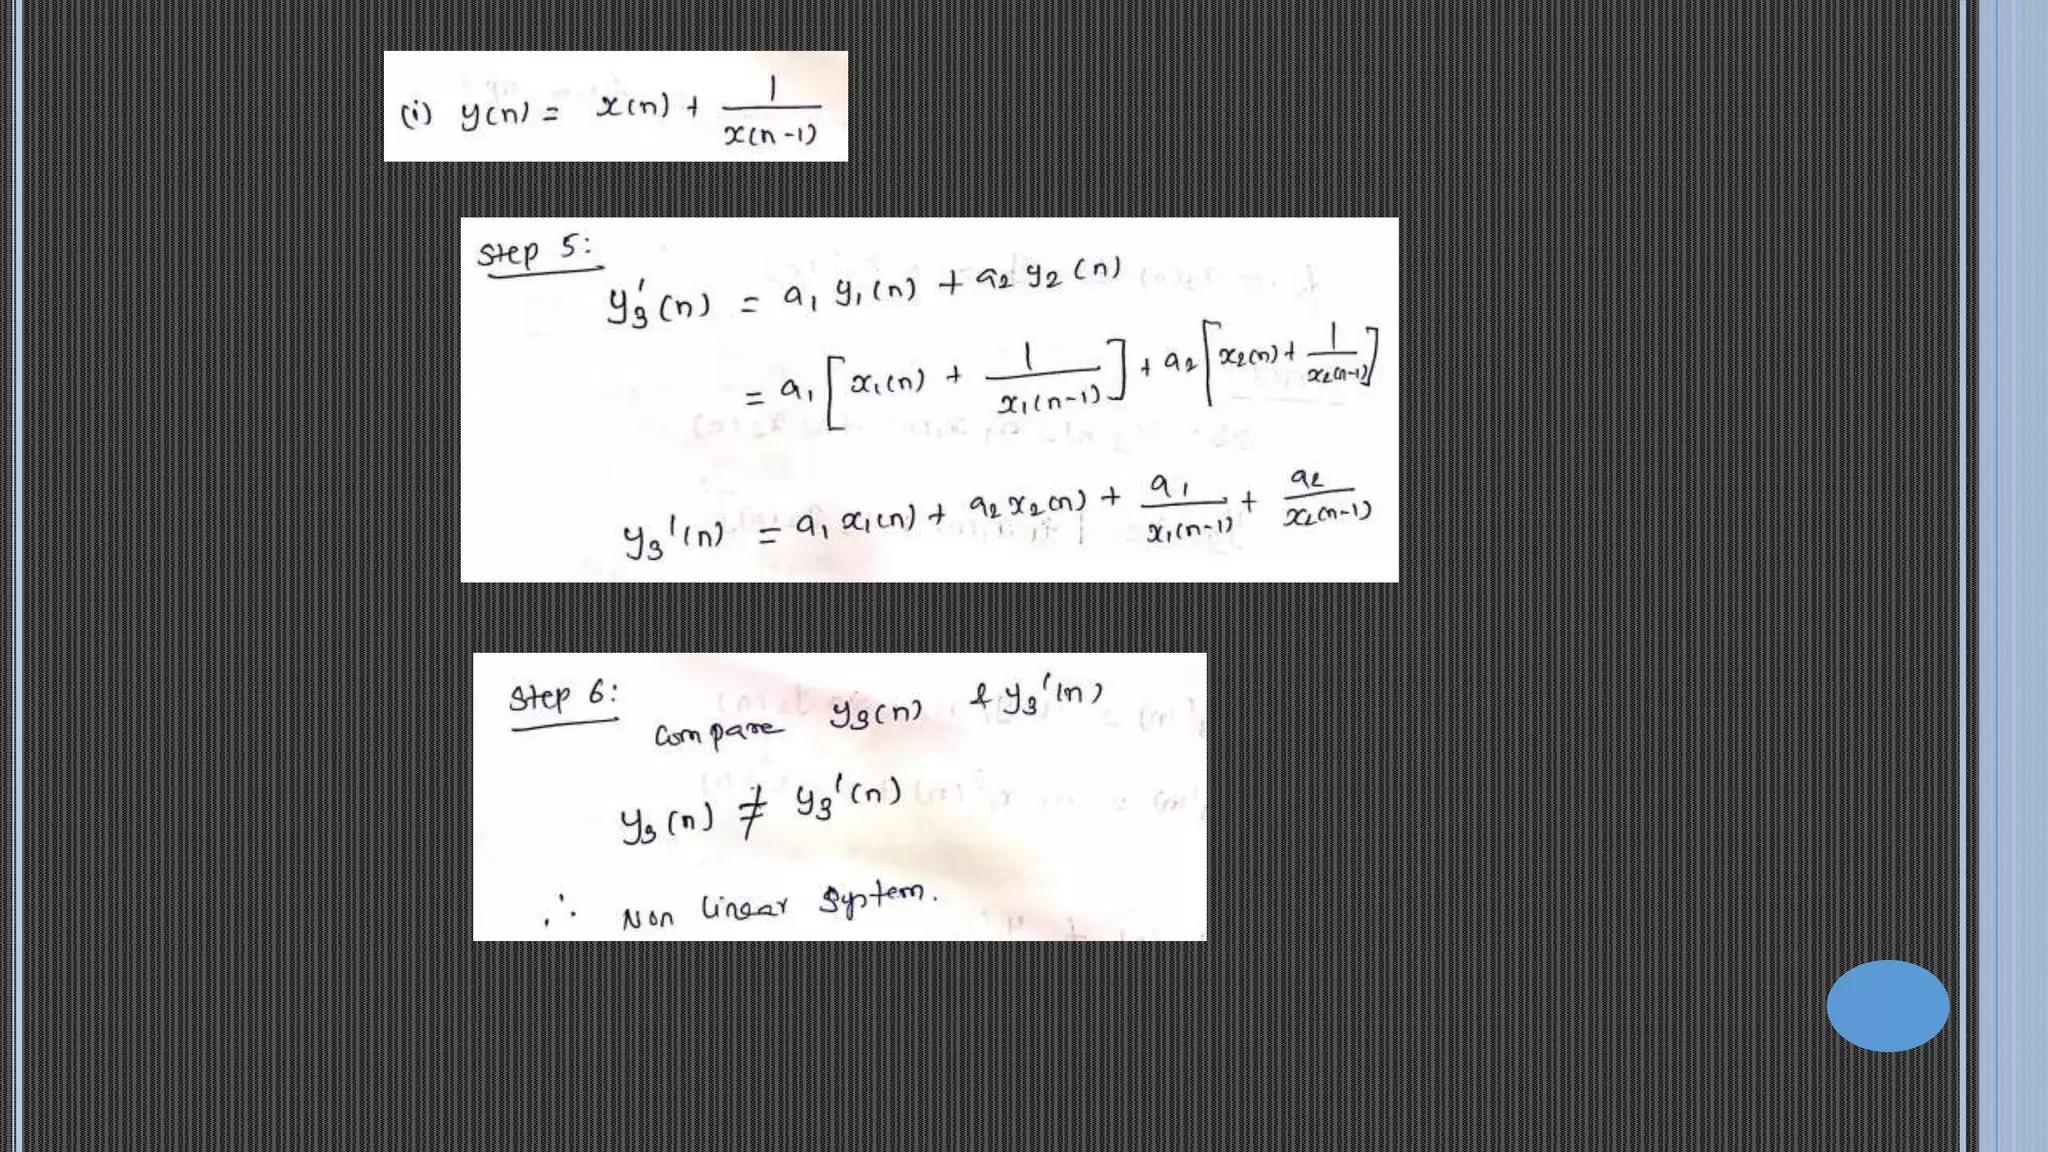 (i) y(n) = x(n) + 1/x(n-1)
Step 5:
y3'(n) = a1 y1(n) + a2 y2(n)
= a1 [x1(n) + 1/x1(n-1)] + a2 [x2(n) + 1/x2(n-1)]
y3'(n) = a1 x1(n) + a2 x2(n) + a1/x1(n-1) + a2/x2(n-1)
Step 6:
Compare y3(n) & y3'(n)
y3(n) ≠ y3'(n)
∴ Non linear system.